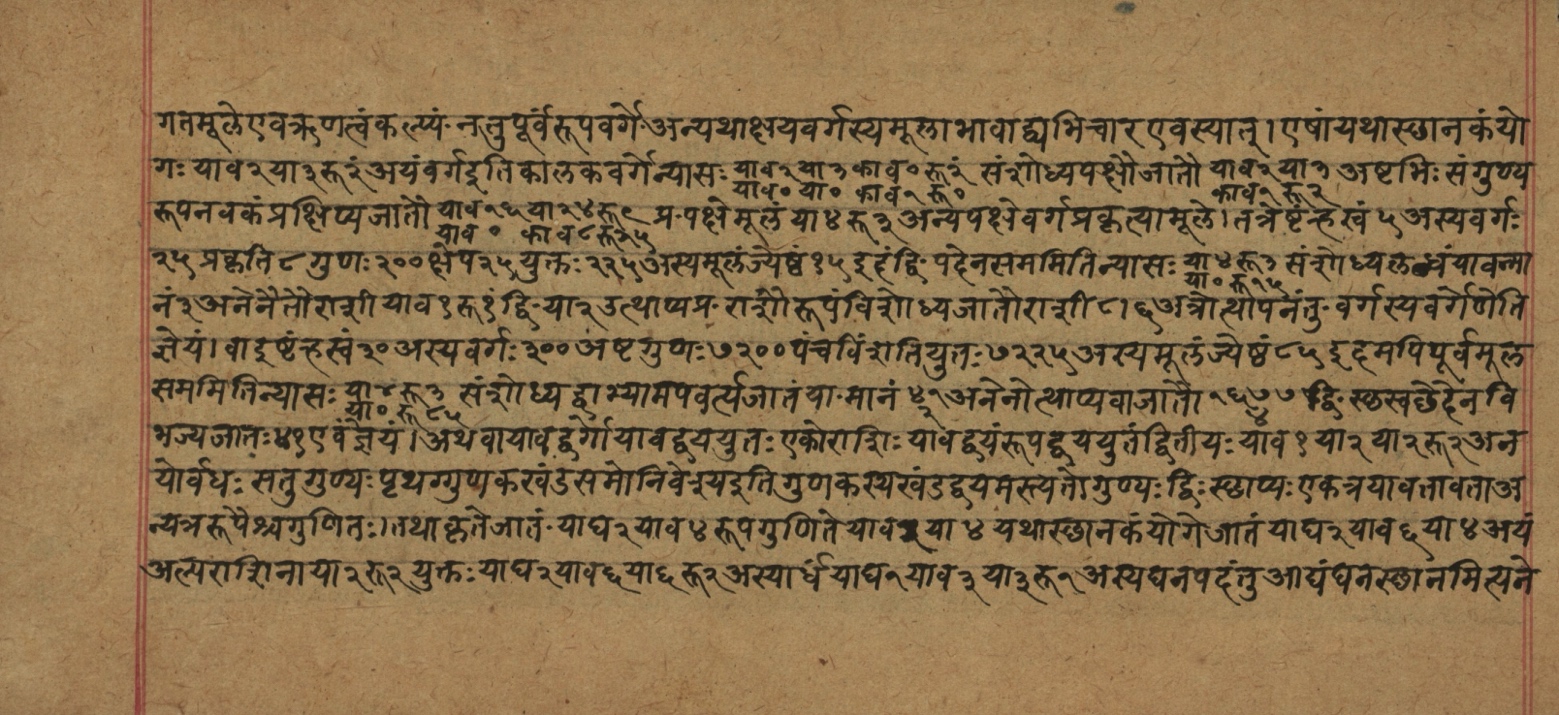 गतमूले एव ऋणत्वं कल्प्यं न तु पूर्वरूपवर्गे अन्यथा क्षयवर्गस्य मूलाभावाद्व्यभिचार एव स्यात् । एषां यथास्छानकं यो
गः याव २ या ३ रू २ं अयं वर्ग इति कालकवर्गेन्यासः याव २ या ३ काव ० रू २ं संशोध्य पक्षौ जातौ याव २ या ३ अष्टभिः संगुण्य
याव ० या ० काव १ रू ० काव १ रू २
रूपनवकं प्रक्षिप्य जातौ याव १६ या २४ रू ९ प्र॰पक्षे मूलं या ४ रू ३ अन्यपक्षे वर्गप्रकृत्या मूले । तत्रेष्टं ह्रस्वं ५ अस्य वर्गः
याव ० काव ८ रू २५
२५ प्रकृति ८ गुणः २०० क्षेप २५ युक्तः २२५ अस्य मूलं ज्येष्ठं १५ इदं द्वि॰पदेन सममिति न्यासः या ४ रू ३ संशोध्य लब्धं यावन्मा
या ० रू १५
नं ३ अनेनैतौ राशी याव १ रू १ं द्वि॰या २ उत्थाप्य प्र॰राशौ रूपं विशोध्य जातौ राशी ८ । ६ अत्रोत्थापनं तु वर्गस्य वर्गेणेति
ज्ञेयं । वा इष्टं ह्रस्वं ३० अस्य वर्गः ९०० अष्टगुणः ७२०० पंचविंशतियुतः ७२२५ अस्य मूलं ज्येष्ठं ८५ इदमपि पूर्वमूल
सममिति न्यासः या ४ रू ३ संशोध्य द्वाभ्यामपवर्त्य जातं या॰मानं ४१ अनेनोत्थाप्य वा जातौ १६७७ द्वि॰स्छस्वछेदेन वि
या ० रू ८५ २ ४
भज्य जातः ४१ एवं ज्ञेयं । अथवा यावद्वर्गो यावद्द्वययुतः एको राशिः यावद्द्वयं रूपद्वययुतं द्वितीयः याव १ या २ या २ रू २ अन
योर्वधः स तु गुण्यः पृथग्गुणकखंडसमो निवेश्य इति गुणकस्य खंडद्वयमस्त्यतो गुण्यः द्विः स्छाप्यः एकत्र यावत्तावता अ
न्यत्र रूपैश्च गुणितः । तथा कृते जातं याघ २ याव ४ रूपगुणिते याव २ या ४ यथास्छानकं योगे जातं याघ २ याव ६ या ४ अयं
अल्पराशिना या २ रू २ युक्तः याघ २ याव ६ या ६ रू २ अस्यार्धं याघ १ याव ३ या ३ रू १ अस्य घनपदं तु आद्यं घनस्छानमित्यने